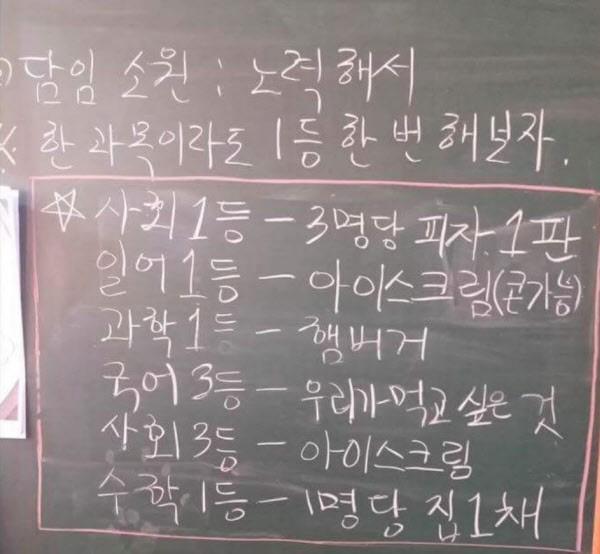 담임 소원 : 노력해서
※ 한 과목이라도 1등 한 번 해보자.
☆ 사회 1등 - 3명당 피자 1판
일어 1등 - 아이스크림(콘가능)
과학 1등 - 햄버거
국어 3등 - 우리가 먹고 싶은 것
사회 3등 - 아이스크림
수학 1등 - 1명당 집 1채